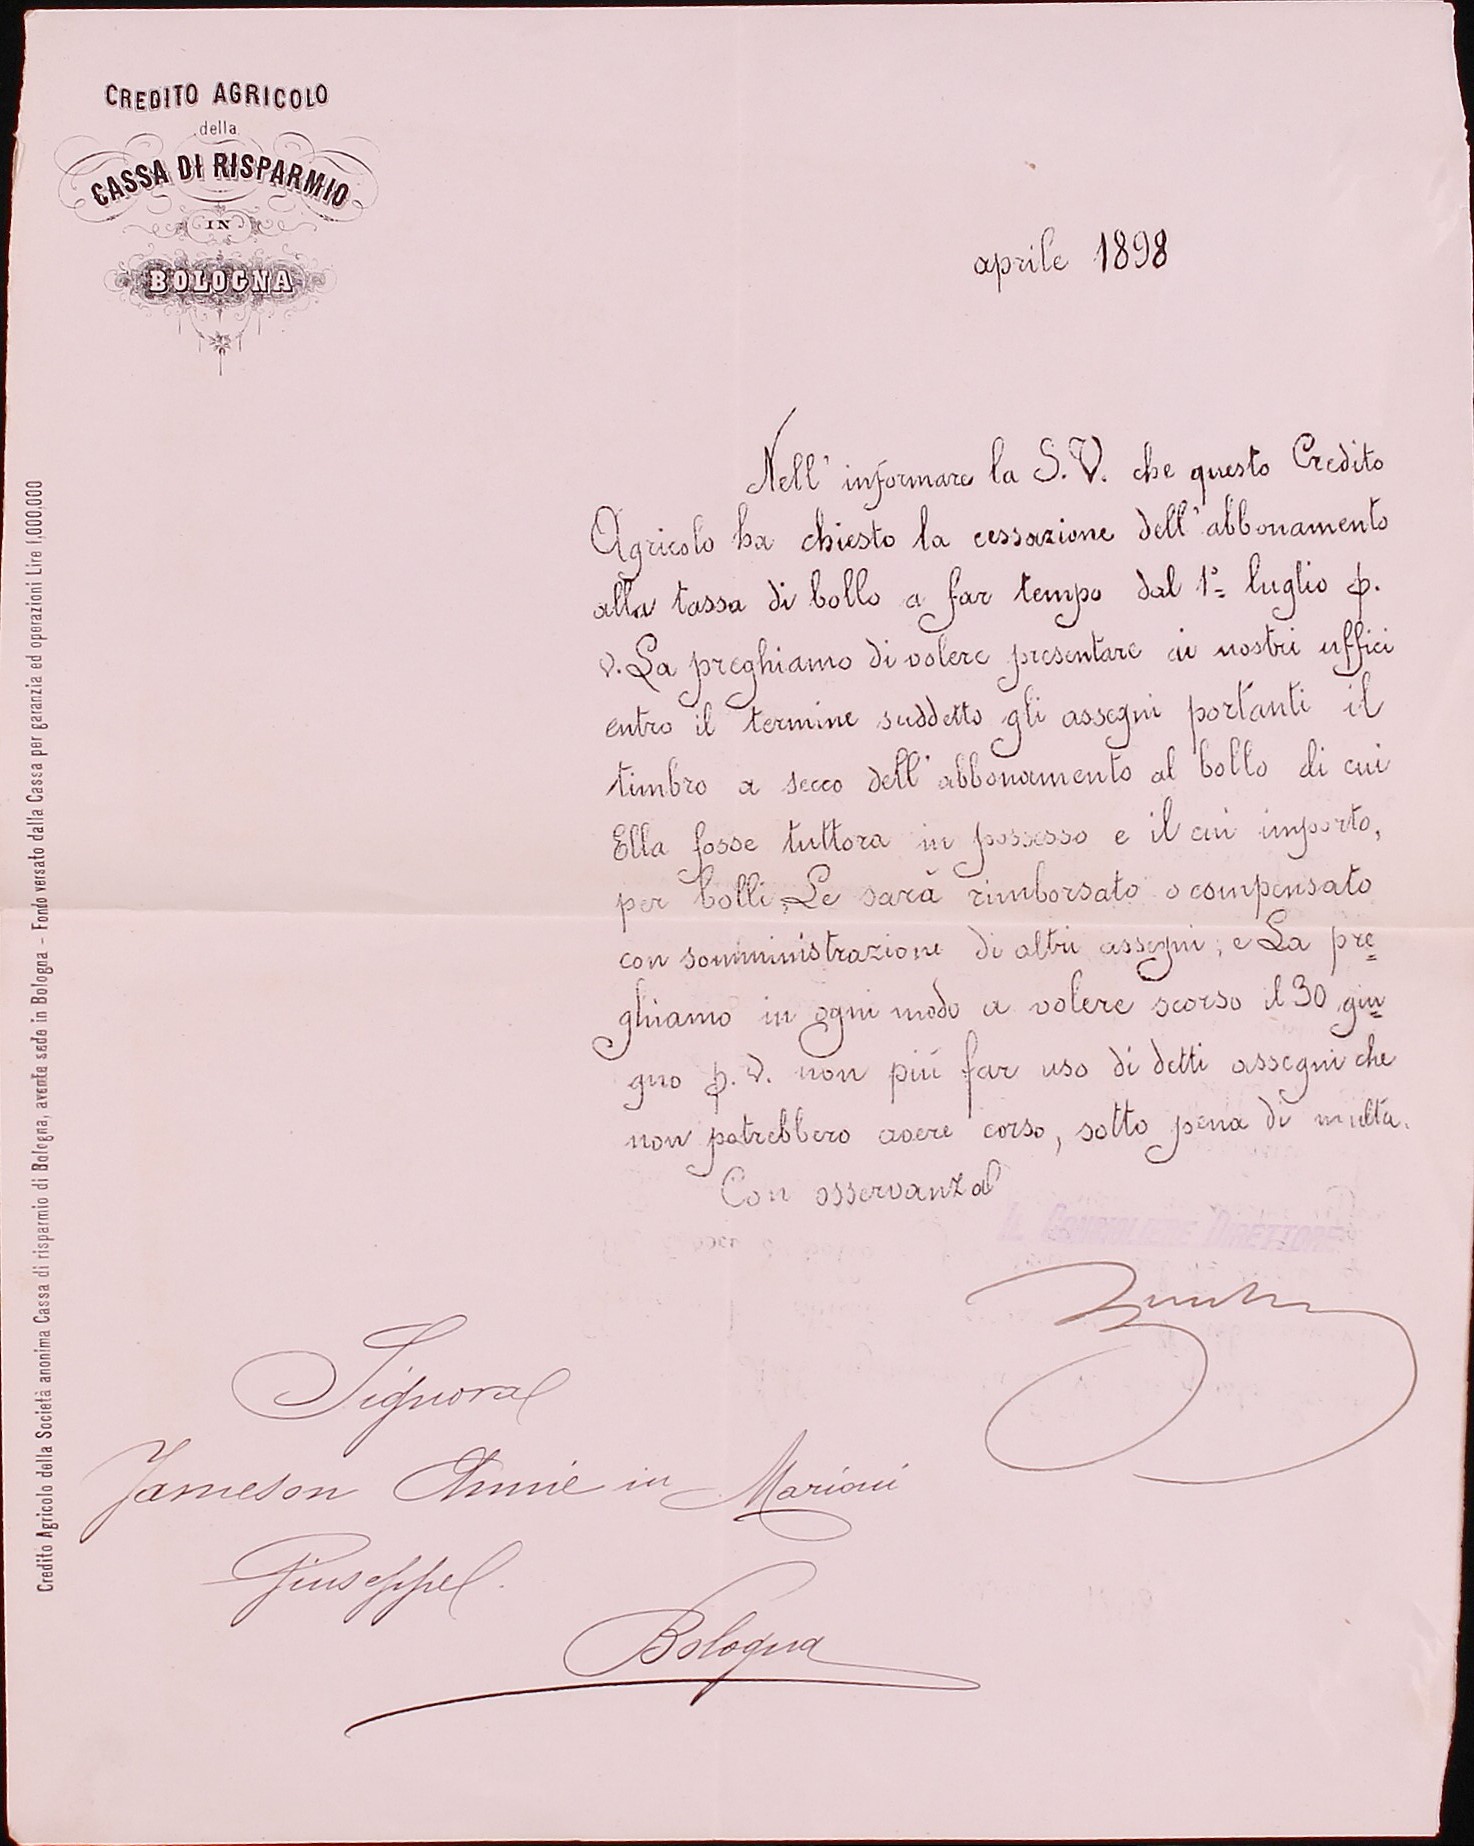 CREDITO AGRICOLO
della
CASSA DI RISPARMIO
IN
BOLOGNA
aprile 1898
Nell' informare la S. V. che questo Credito
Agricolo ha chiesto la cessazione dell' abbonamento
alla tassa di bollo a far tempo dal 1º= luglio p.
v. La preghiamo di volere presentare ai nostri uffici
entro il termine suddetto gli assegni portanti il
timbro a secco dell' abbonamento al bollo di cui
Ella fosse tuttora in possesso e il cui importo,
per bolli, Le sarà rimborsato o compensato
con somministrazione di altri assegni; e La pre=
ghiamo in ogni modo a volere scorso il 30 giu=
gno p. v. non più far uso di detti assegni che
non potrebbero avere corso, sotto pena di multa.
Con osservanza
IL CONSIGLIERE DIRETTORE
Signora
Jameson Annie in Marconi
Giuseppe.
Bologna
Credito Agricolo della Società anonima Cassa di risparmio di Bologna, avente sede in Bologna - Fondo versato dalla Cassa per garanzia ed operazioni Lire 1,000,000